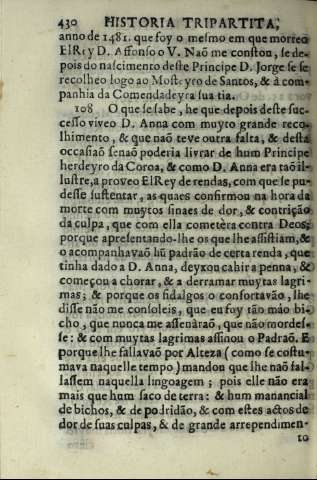 430 HISTORIA TRIPARTITA,
anno de 1481. que foy o mesmo em que morreo
ElRey D. Affonso o V. Naõ me constou, se de-
pois do nascimento deste Principe D. Jorge se se
recolheo logo ao Mosteyro de Santos, & à com-
panhia da Comendadeyra sua tia.
108 O que se sabe, he que depois deste suc-
cesso viveo D. Anna com muyto grande reco-
lhimento, & que naõ teve outra falta, & desta
occasiaõ senaõ poderia livrar de hum Principe
herdeyro da Coroa, & como D. Anna era taõ il-
lustre, a proveo ElRey de rendas, com que se pu-
desse sustentar, as quaes confirmou na hora da
morte com muytos sinaes de dor, & contriçaõ
da culpa, que com ella cometèra contra Deos;
porque apresentando-lhe os que lhe assistiam, &
o acompanhavaõ hũ padraõ de certa renda, que
tinha dado a D. Anna, deyxou cahir a penna, &
começou a chorar, & a derramar muytas lagri-
mas; & porque os fidalgos o confortavão, lhe
disse não me consoleis, que eu foy tão mào bi-
cho, que nunca me assenàraõ, que não mordes-
se: & com muytas lagrimas assinou o Padraõ. E
porque lhe fallavaõ por Alteza (como se costu-
mava naquelle tempo) mandou que lhe naõ fal-
lassem naquella lingoagem; pois elle não era
mais que hum saco de terra: & hum manancial
de bichos, & de podridão, & com estes actos de
dor de suas culpas, & de grande arrependimen-
to